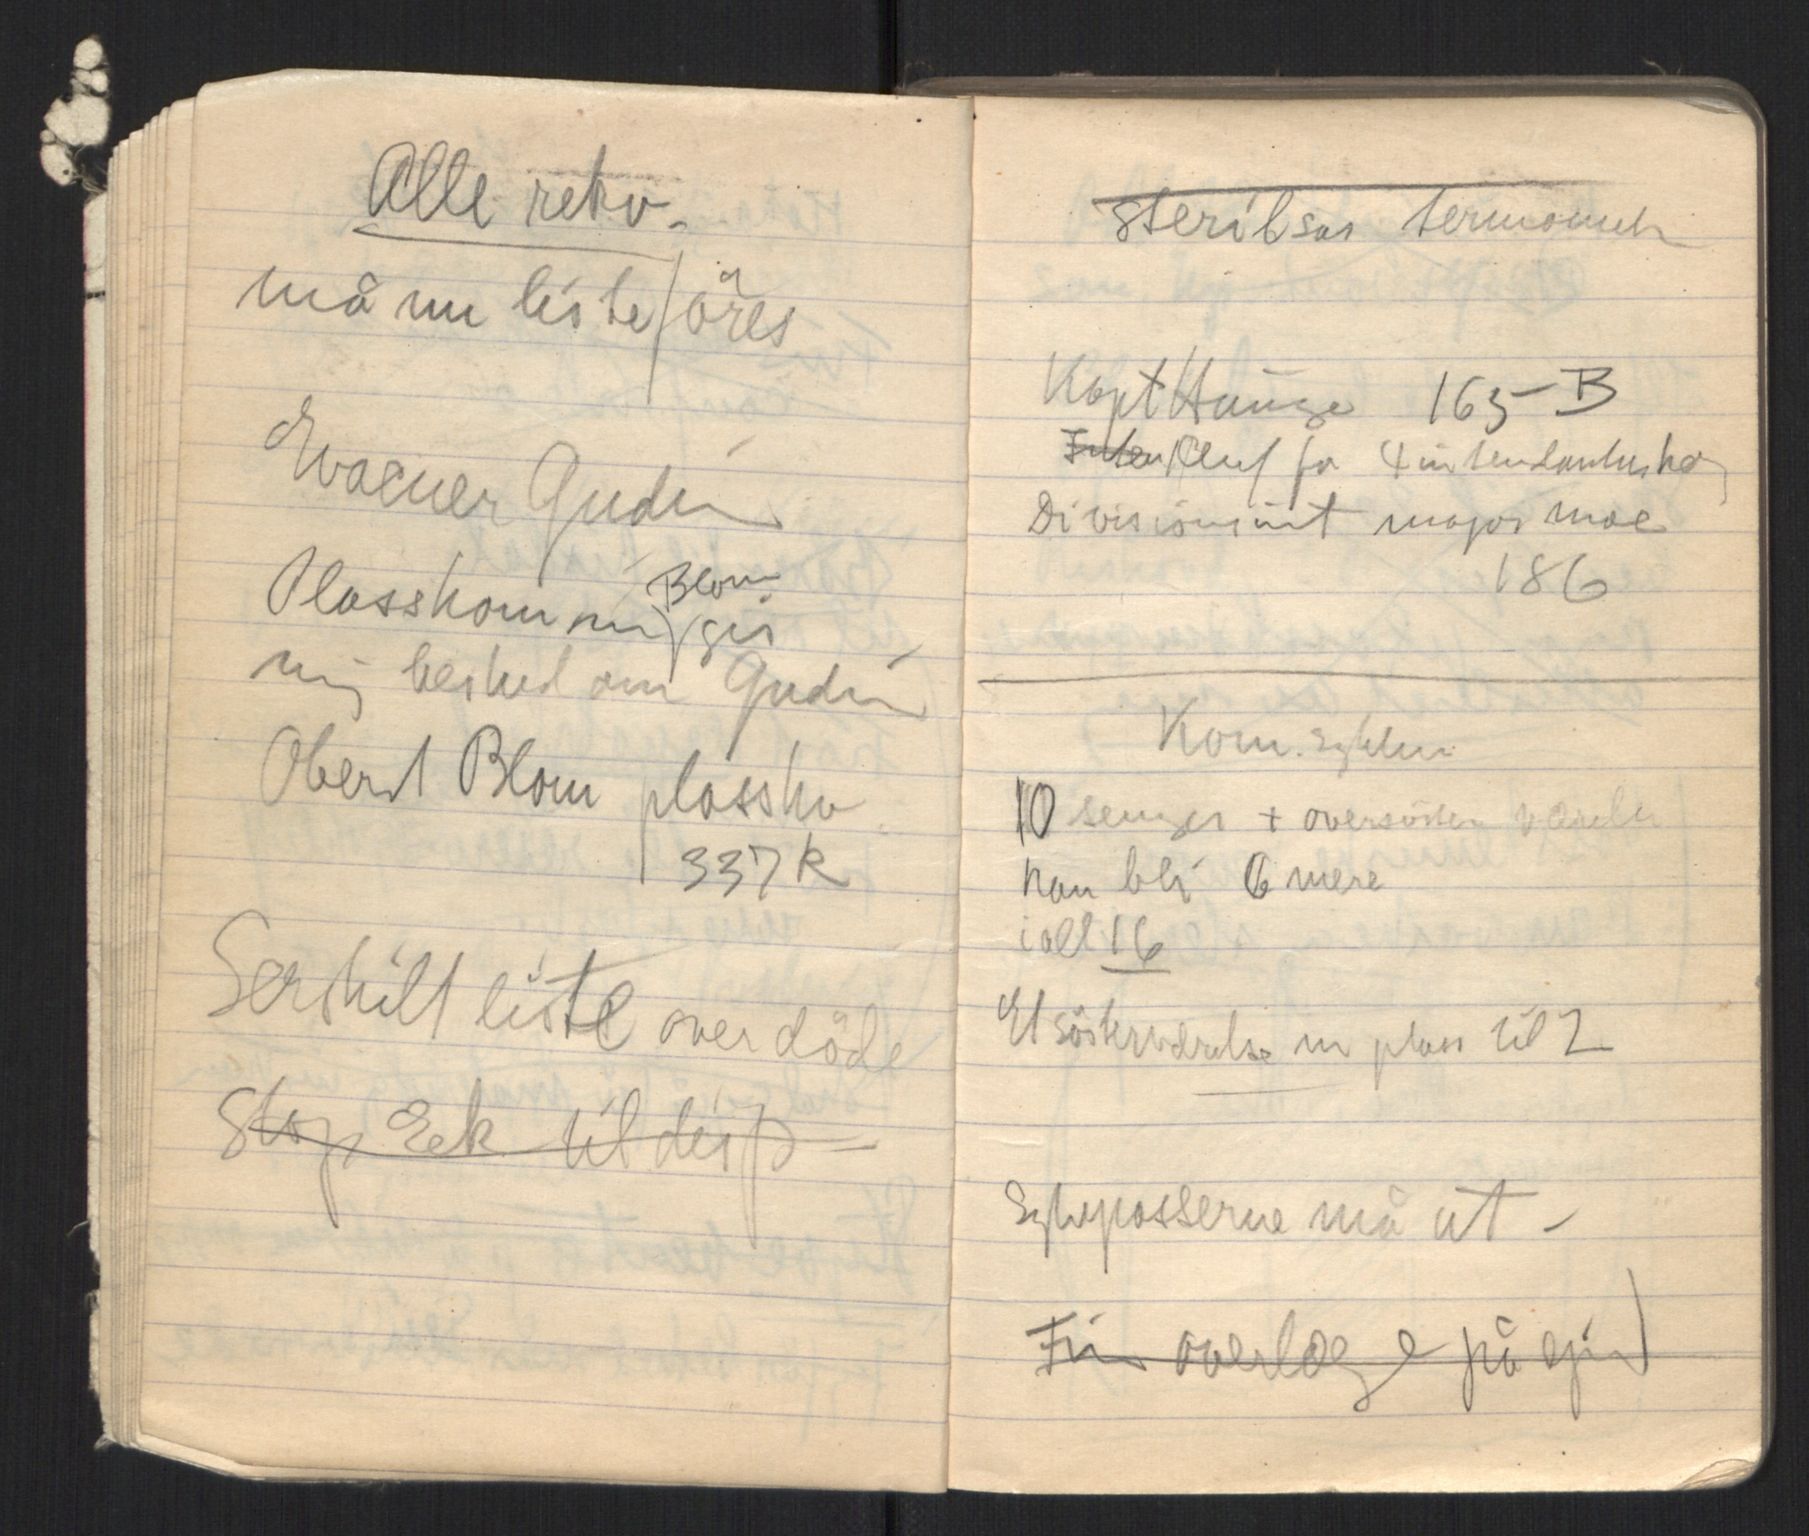 Alle rekv.
må nu listeföres
Evacuer Gudim
Plasskomm Blom
gir
mig beskied om Gudim
Oberst Blom plassko
337 K
Serskilt liste over döde
Stop Eek til disp
sterilsas termomet
Kapt Hauge 165-B
Chef for 4 intendanturko
Divisionsint major moe
186
Kom. sykehus
10 senger + oversöster värelse
kan bli 6 mere
i alt 16
Et sösterverelse m plass til 2
Sykepasserne må ut -
Fin overlege på ejird